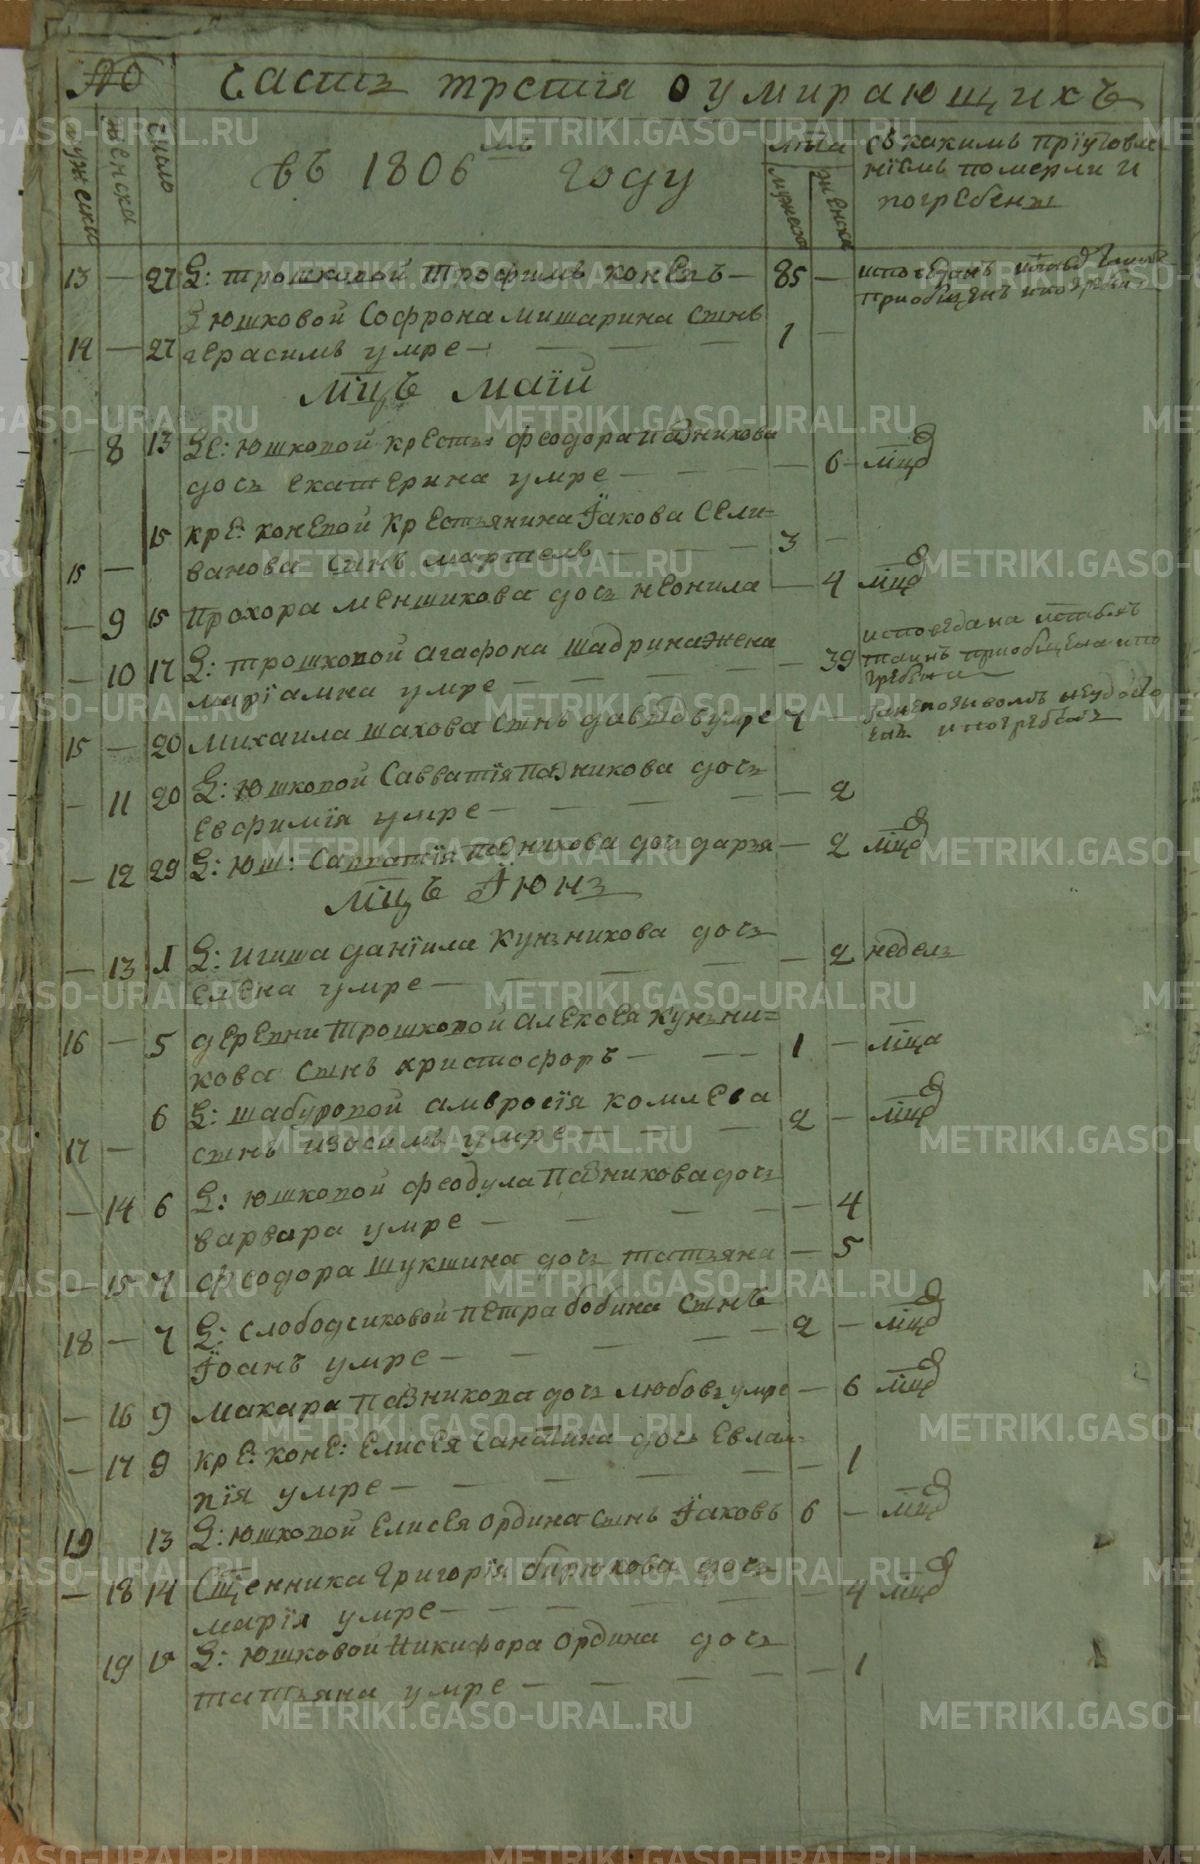 № Часть третїя о умирающихъ
мужеска женска число въ 1806мъ году лѣта мужеска женска съ какимъ прїуговле
нїемъ померли и
погребены
13 — 27 Д: трошковой Трофимъ коневъ — 85 — исповѣданъ
приобщенъ и погребенъ
юшковой Софрона мишарина сынъ
14 — 27 герасимъ умре — 1 —
Мцъ маїй
— 8 13 Де: юшковой крестья: феодора пазникова
дочь екатерина умре — — 6 — мцѣ
15 кре: коневой крестьянина Їакова Сели=
15 — ванова сынъ мартемъ — 3 —
— 9 15 прохора меншикова дочь неонила — 4 мцѣ
— 10 17 Д: трошковой агафона шадрина жена — 39 исповѣдана
марїамна умре — таинъ приобщена и по
гребена
15 — 20 михаила шахова сынъ давыдъ умре 7 —
и погребенъ
— 11 20 Д: юшковой Савватїя пазникова дочь — 2
евфимїя умре —
— 12 29 Д: юш: Савватїя пазникова дочь дарья — 2 мцѣ
Мцъ Їюнь
— 13 1 Д: игиша данїила кузникова дочь — 2 недель
елена умре —
16 — 5 деревни трошковой алексея кузни= 1 — мца
кова сынъ христофоръ —
6 Д: шабуровой амвросїя комлева 2 — мцѣ
17 — сынъ изосимъ умре —
— 14 6 Д: юшковой феодула пазникова дочь — 4
варвара умре —
— 15 7 феодора шукшина дочь татьяна — 5
18 — 7 Д: слободчиковой петра бобина сынъ 2 — мцѣ
Їоанъ умре —
— 16 9 макара пазникова дочь любовь умре — 6 мцѣ
— 17 9 кре: коне: елисея санатина дочь евлам= — 1
пїя умре —
19 13 Д: юшковой елисея ордина сынъ Їаковъ 6 — мцѣ
— 18 14 Сщенника григорїя бирюкова дочь — 4 мцѣ
марїя умре —
19 Д: юшковой никифора ордина дочь — 1
татьяна умре —
METRIKI.GASO-URAL.RU